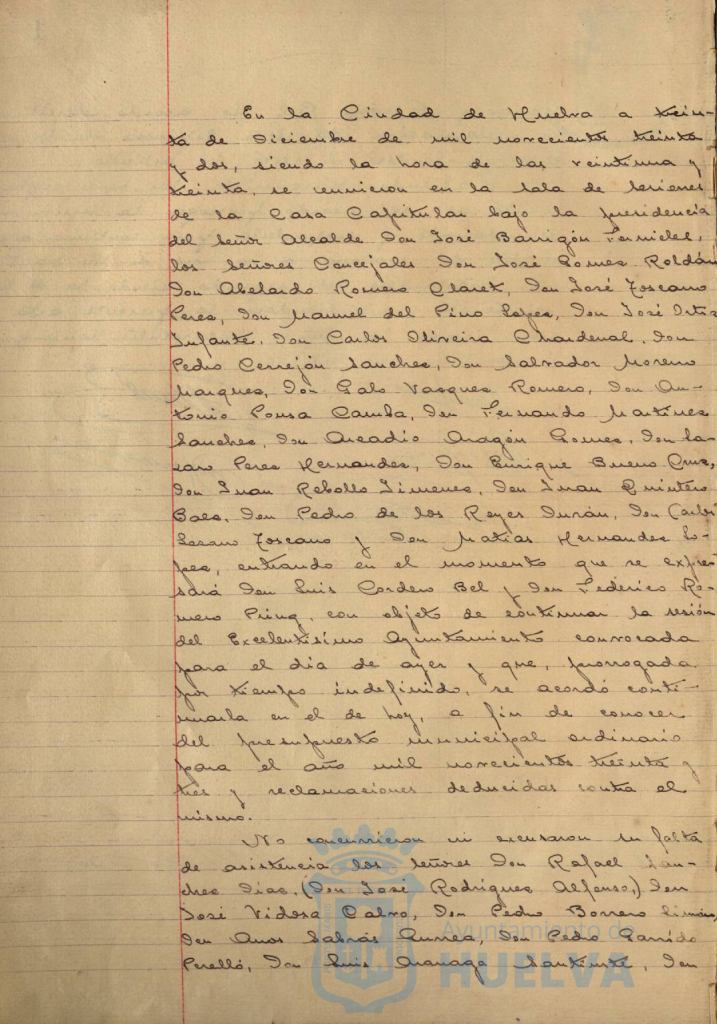 En la Ciudad de Huelva a trein-
ta de Diciembre de mil novecientos treinta
y dos, siendo la hora de las veintiuna y
treinta, se reunieron en la sala de sesiones
de la Casa Capitular bajo la presidencia
del Señor Alcalde Don José Barrigón Fornieles,
los Señores Concejales Don José Gomez Roldán
Don Abelardo Romero Claret, Don José Toscano
Perez, Don Manuel del Pino Lopez, Don José Ortiz
Infante, Don Carlos Oliveira Chardenal, Don
Pedro Cerrejón Sanchez, Don Salvador Moreno
Marquez, Don Galo Vazquez Romero, Don An-
tonio Ponsa Camba, Don Fernando Martinez
Sanchez, Don Arcadio Aragón Gomez, Don La-
zaro Perez Hernandez, Don Enrique Bueno Cruz,
Don Juan Rebollo Jimenez, Don Juan Quintero
Baez, Don Pedro de los Reyes Durán, Don Carlos
Lozano Toscano y Don Matías Hernandez Lo-
pez, entrando en el momento que se expre-
sará Don Luis Cordero Bel y Don Federico Ro-
mero, con objeto de continuar la sesión
del Excelentísimo Ayuntamiento convocada
para el dia de ayer y que, prorrogada
por tiempo indefinido, se acordó conti-
nuarla en el de hoy, a fin de conocer
del presupuesto municipal ordinario
para el año mil novecientos treinta y
tres y reclamaciones deducidas contra el
mismo.
No concurrieron ni excusaron su falta
de asistencia los señores Don Rafael San-
chez Diaz, (Don José Rodriguez Alfonso,) Don
José Vidosa Calvo, Don Pedro Borrero Limón,
Don Amos Sabrás Gurrea, Don Pedro Garrido
Perelló, Don Luis, Don
Ayuntamiento de
HUELVA